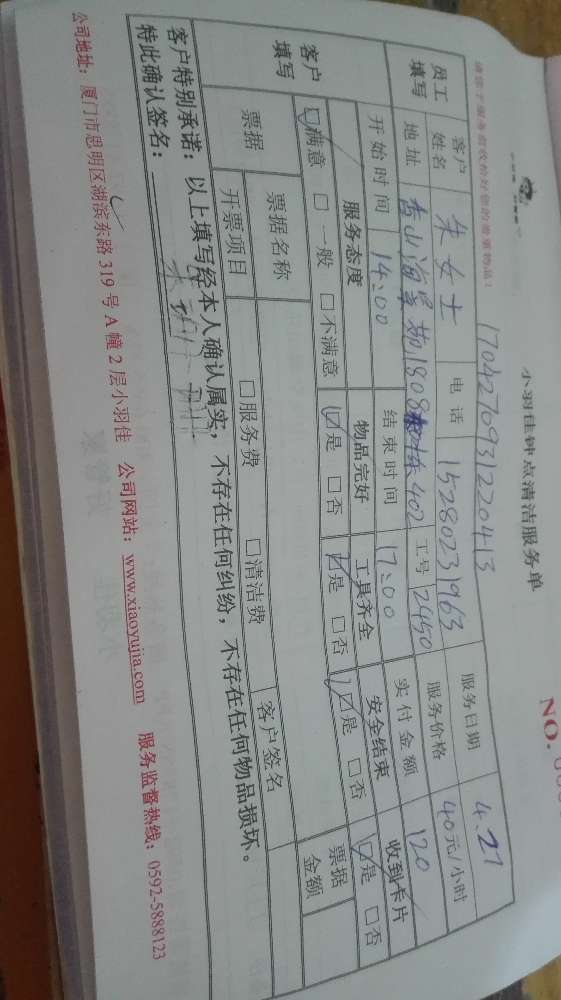 小羽佳钟点清洁服务单
NO.
1704270931220413
请您于服务前收检好您的贵重物品！
员工填写
客户姓名 朱女士 电话 15280231963 服务日期 4.27
地址 香山海景苑1808 栋402 工号 2450 服务价格 40元/小时
开始时间 14:00 结束时间 17:00 实付金额 120
客户填写
服务态度 物品完好 工具齐全 安全结束 收到卡片
☑满意 □一般 □不满意 ☑是 □否 ☑是 □否 ☑是 □否 ☑是 □否
票据 票据名称 客户签名 票据金额
开票项目 □服务费 □清洁费
客户特别承诺：以上填写经本人确认属实，不存在任何纠纷，不存在任何物品损坏。
特此确认签名：
公司地址：厦门市思明区湖滨东路319号A幢2层小羽佳 公司网站：www.xiaoyujia.com 服务监督热线：0592-5888123